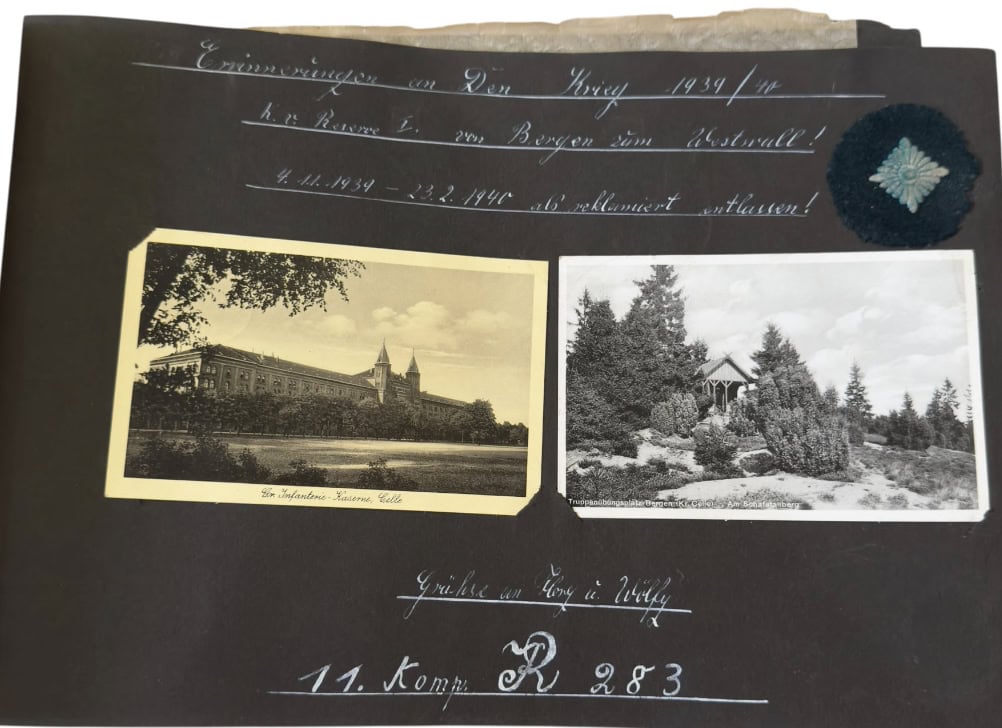 Erinnerungen an Den Krieg 1939/40
k. v. Reserve I. von Bergen zum Westwall!
4.11.1939 – 23.2.1940 als reklamiert entlassen!
Gr. Infanterie-Kaserne, Celle
Truppenübungsplatz Bergen (Kr. Celle) Am
Grühse an u. Wölfy
11. Komp. JR 283